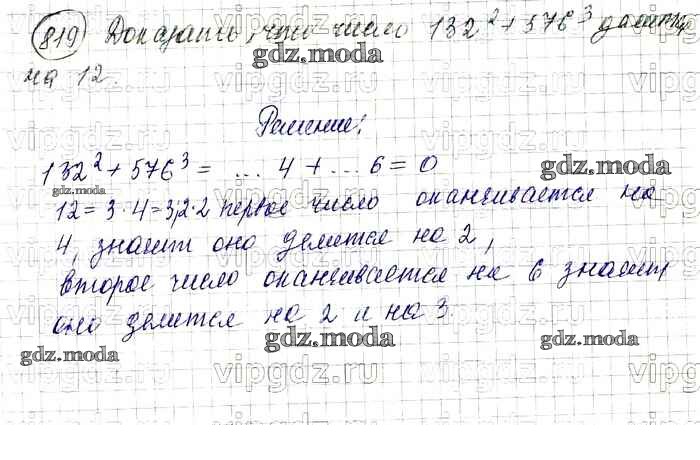 819 Доказать, что число 132² + 576³ делится
на 12.
Решение:
132² + 576³ = ... 4 + ... 6 = 0
12 = 3 · 4 = 3·2·2 первое число оканчивается на
4, значит оно делится на 2,
второе число оканчивается на 6 значит
оно делится на 2 и на 3.
gdz.moda
gdz.moda
gdz.moda
gdz.moda
gdz.moda
gdz.moda
vipgdz.ru